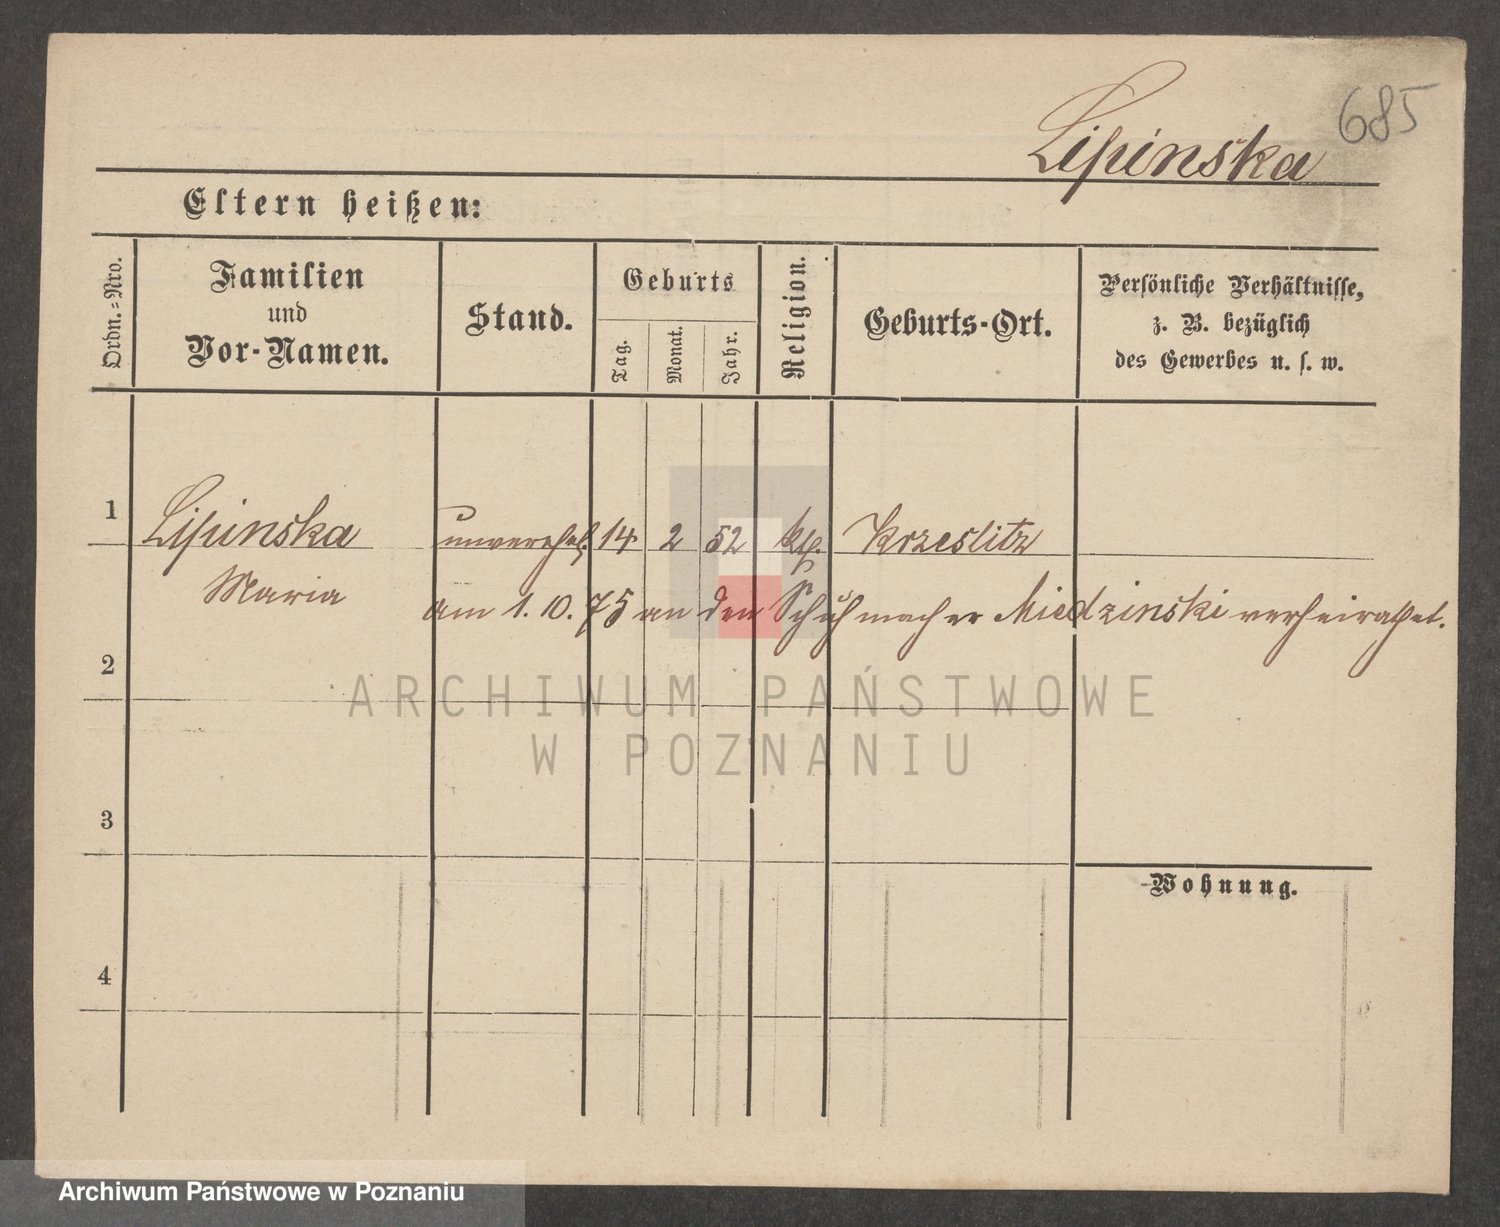 685
Lipinska
Eltern heißen:
Ordn.-Nro.
Familien
und
Vor-Namen.
Stand.
Geburts
Tag.
Monat.
Jahr.
Religion.
Geburts-Ort.
Persönliche Verhältnisse,
z. B. bezüglich
des Gewerbes u. s. w.
1
Lipinska unverehel. 14 2 52 kth. Krzeslitz
Maria am 1. 10. 75 an den Schuhmacher Miedzinski verheirathet.
2
ARCHIWUM PAŃSTWOWE
W POZNANIU
3
Wohnung.
4
Archiwum Państwowe w Poznaniu